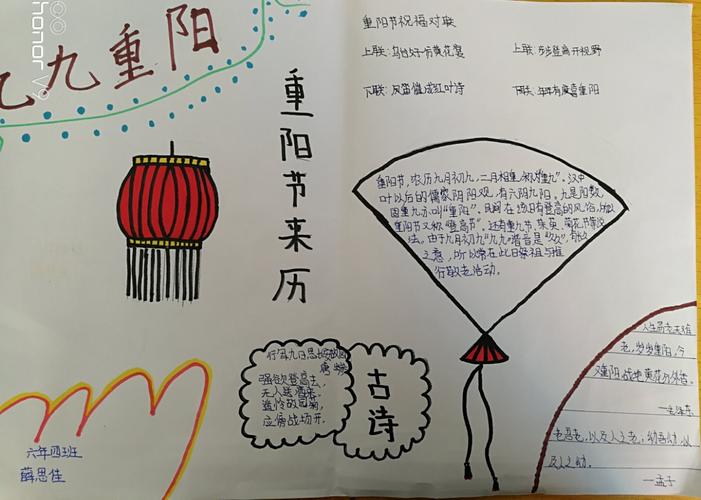 honor V9
九九重阳
重阳节来历
重阳节祝福对联
上联:乌纱好为黄花宴
上联:步步登高开视野
下联:风笛催成红叶诗
下联:年年有庆喜重阳
重阳节,农历九月初九,二月相重,称"重九"。汉中
叶以后的儒家阴阳观,有六阴九阳,九是阳数,
因重九亦叫"重阳"。民间在该日有登高的风俗,所以
重阳节又称"登高节"。还有重九节、茱萸、菊花节等说
法。由于九月初九"九九"谐音是"久久",有长久
之意,所以常在此日祭祖与推
行敬老活动。
行军九日思长安故园
唐
强欲登高去,
无人送酒来。
遥怜故园菊,
应傍战场开。
古诗
人生易老天难
老,岁岁重阳,今
又重阳,战地黄花分外香。
一毛泽东
老吾老,以及人之老,幼吾幼,以
及人之幼。
一孟子
六年四班
薛思佳